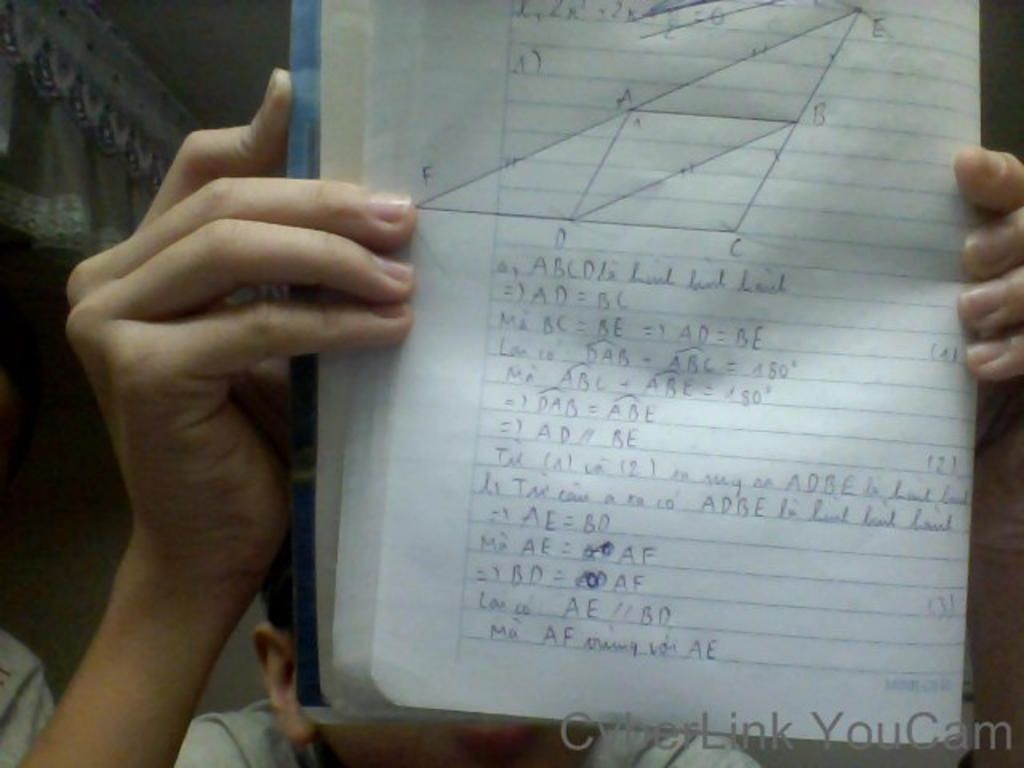 1)
E
A
B
F
D
C
a, ABCD là hình bình hành
=) AD = BC
Mà BC = BE =) AD = BE (1)
Lại có DAB + ABC = 180°
Mà ABC + ABE = 180°
=) DAB = ABE
=) AD // BE (2)
Từ (1) và (2) ta suy ra ADBE là hình bình
b, Từ câu a ta có ADBE là hình bình hành
=) AE = BD
Mà AE = AF
=) BD = AF (3)
Lại có AE // BD
Mà AF trùng với AE
CyberLink YouCam